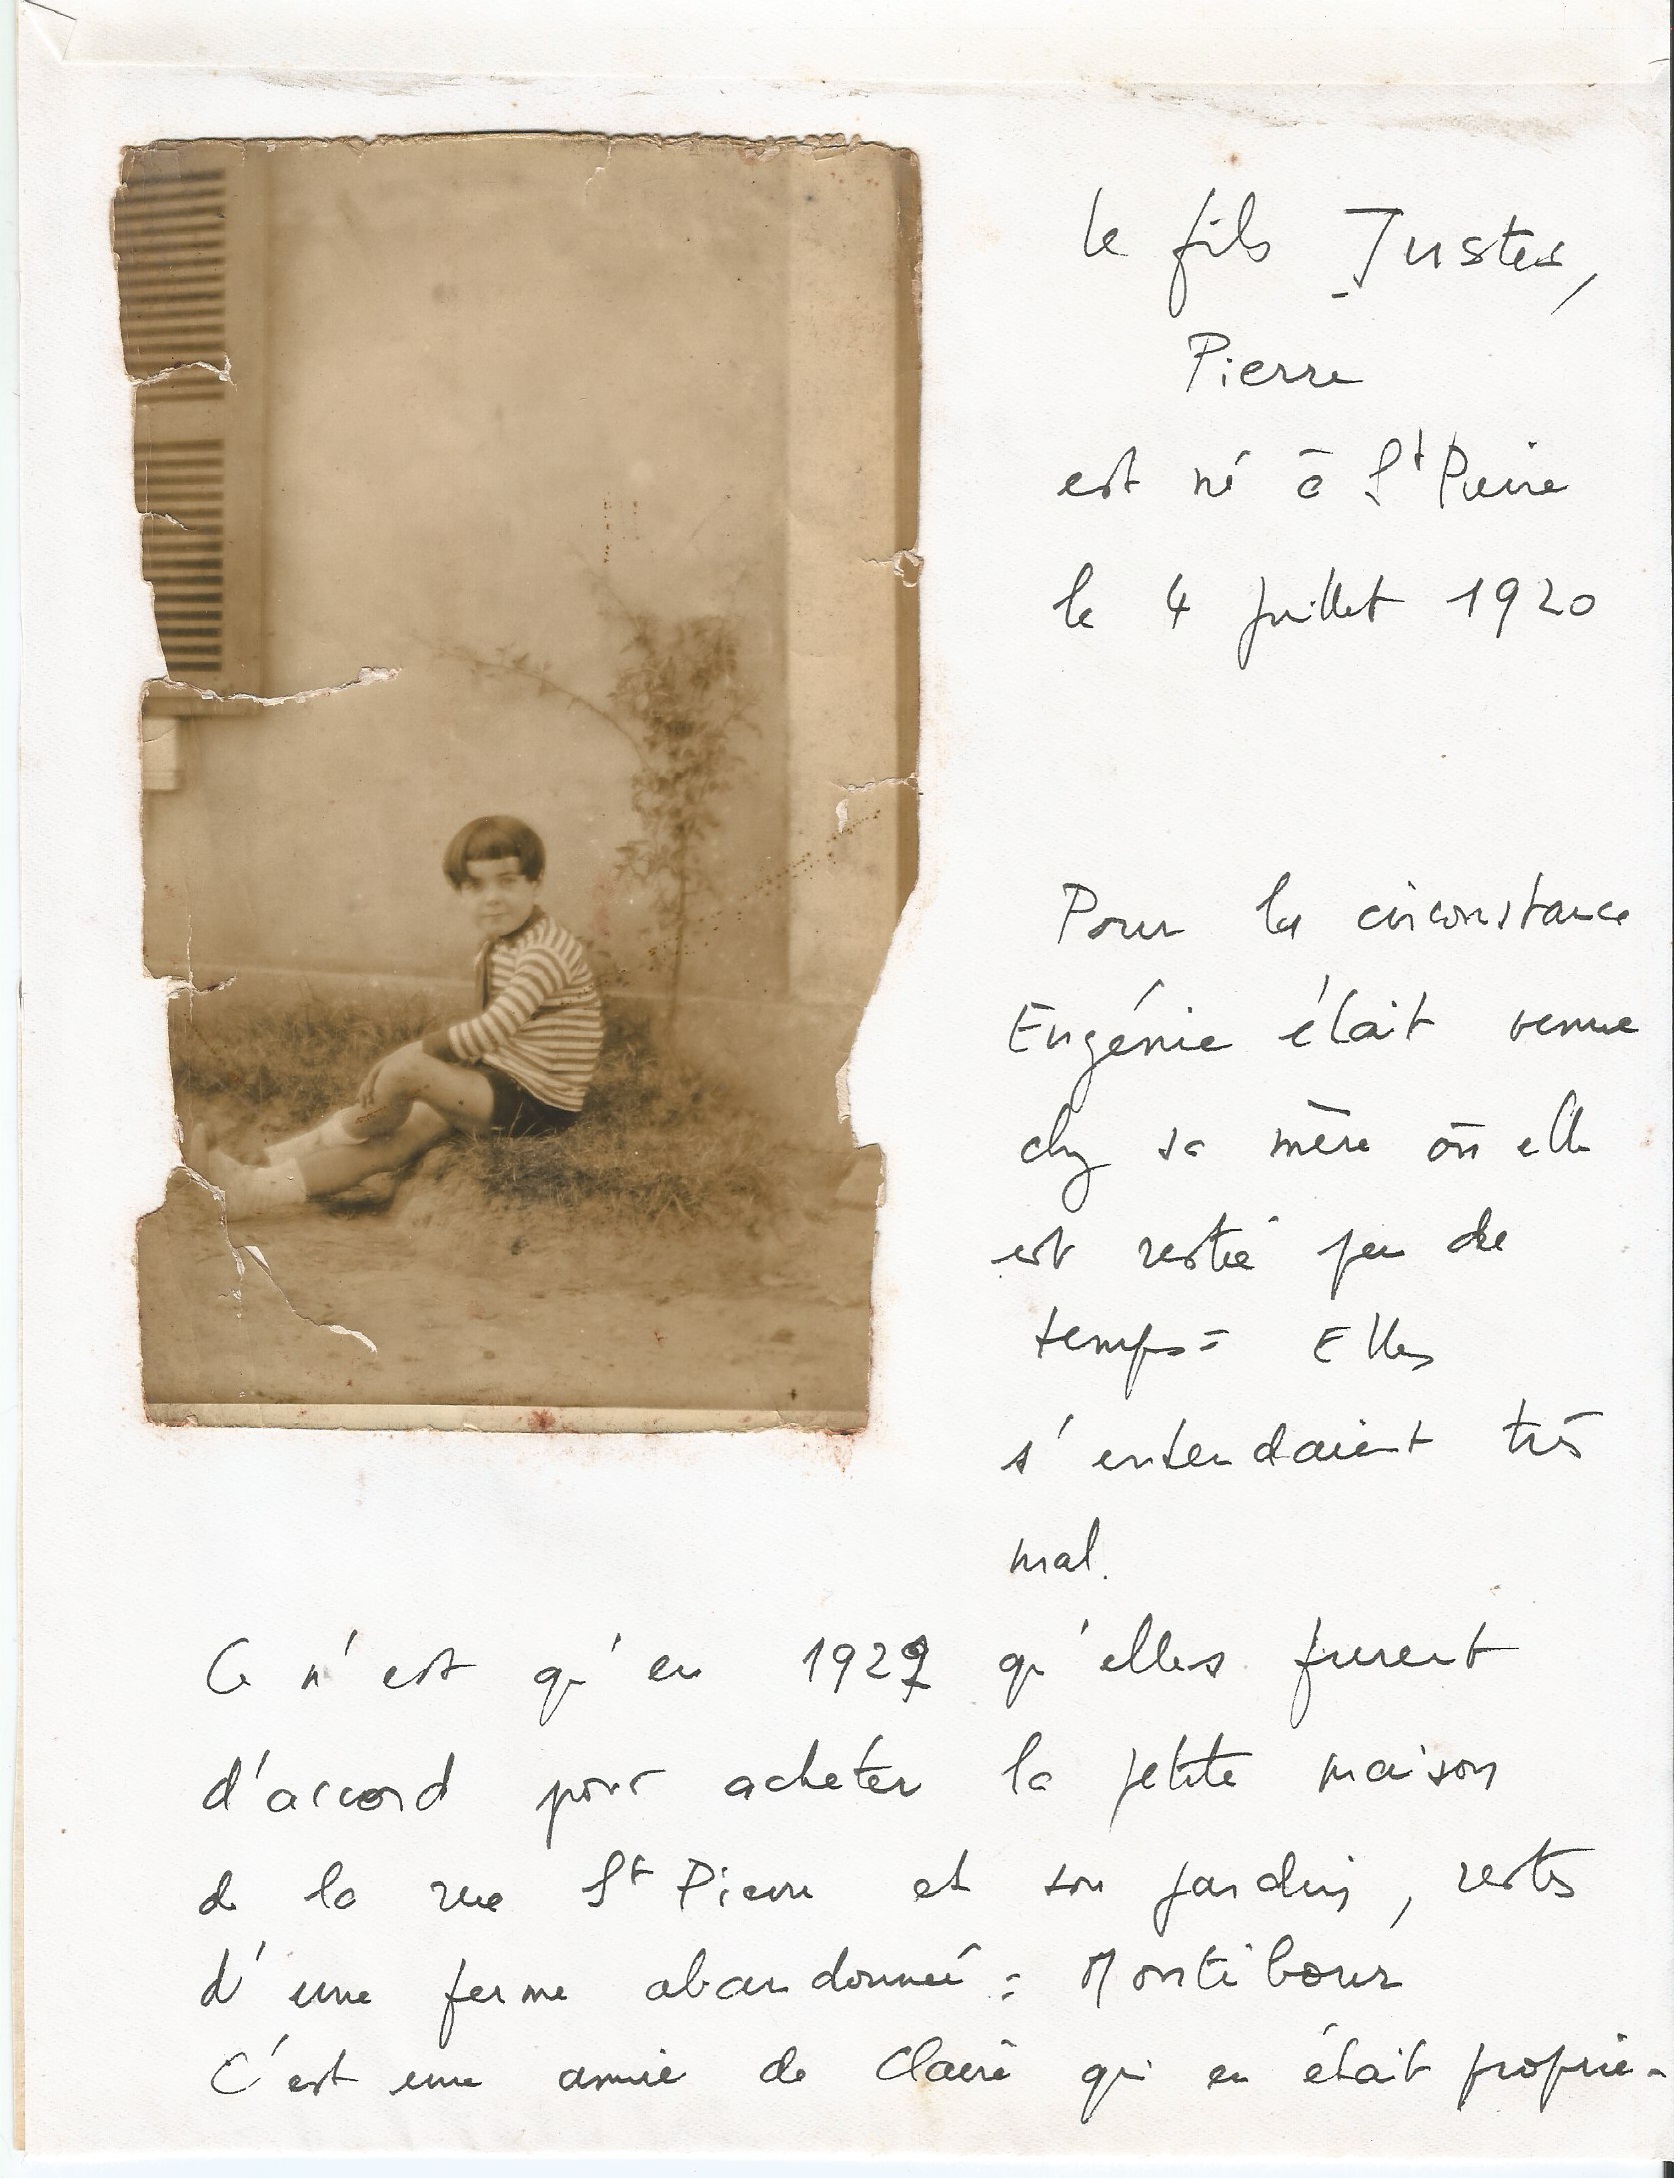 le fils Justes,
Pierre
est né à St Pierre
le 4 juillet 1920
Pour la circonstance
Eugénie était venue
chez sa mère où elle
est restée peu de
temps = Elles
s'entendaient très
mal.
Ce n'est qu'en 1927 qu'elles furent
d'accord pour acheter la petite maison
de la rue St Pierre et son jardin, restes
d'une ferme abandonnée = Montibour
C'est une amie de Claire qui en était proprié-